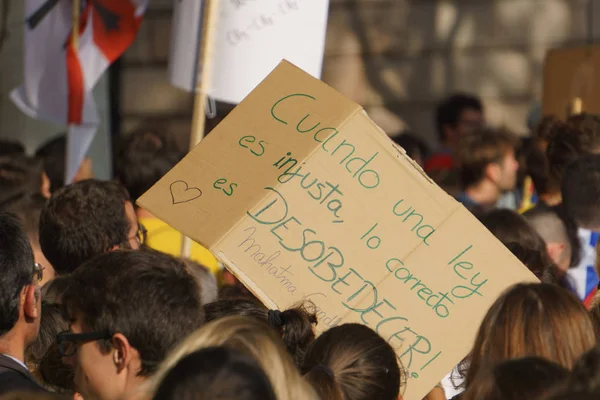 Cuando una ley
es injusta, lo correcto
es DESOBEDECER!
Mahatma